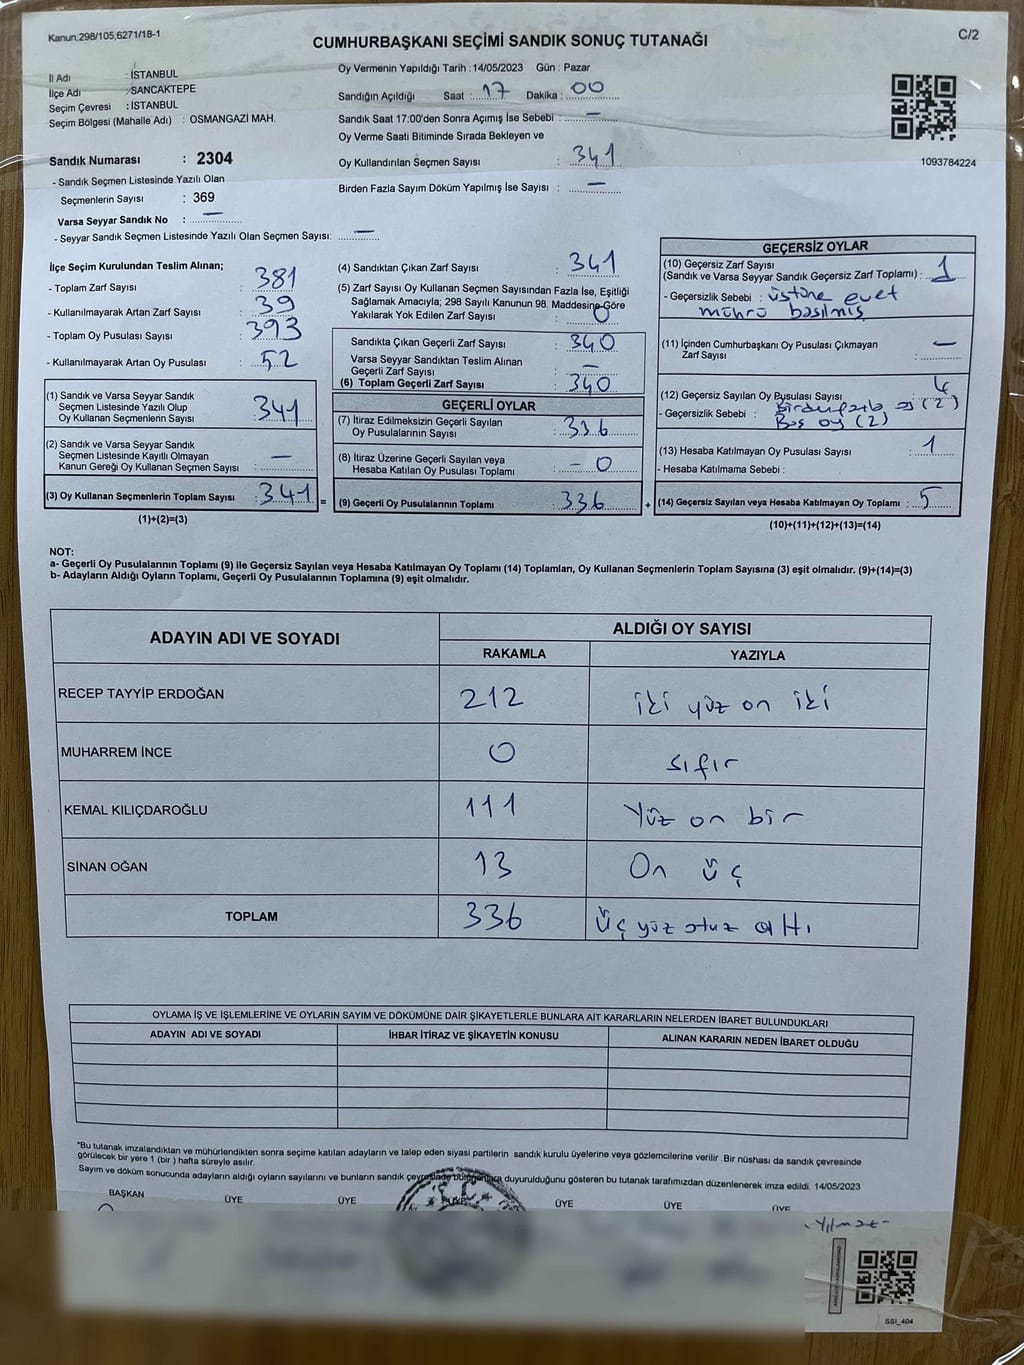 Kanun:298/105,6271/18-1
C/2
CUMHURBAŞKANI SEÇİMİ SANDIK SONUÇ TUTANAĞI
İl Adı : İSTANBUL
İlçe Adı : SANCAKTEPE
Seçim Çevresi : İSTANBUL
Seçim Bölgesi (Mahalle Adı) : OSMANGAZİ MAH.
Sandık Numarası : 2304
- Sandık Seçmen Listesinde Yazılı Olan
Seçmenlerin Sayısı : 369
Varsa Seyyar Sandık No : —
- Seyyar Sandık Seçmen Listesinde Yazılı Olan Seçmen Sayısı: —
Oy Vermenin Yapıldığı Tarih : 14/05/2023 Gün : Pazar
Sandığın Açıldığı Saat : 17 Dakika : 00
Sandık Saat 17:00'den Sonra Açımış İse Sebebi : —
Oy Verme Saati Bitiminde Sırada Bekleyen ve
Oy Kullandırılan Seçmen Sayısı : 341
Birden Fazla Sayım Döküm Yapılmış İse Sayısı : —
1093784224
İlçe Seçim Kurulundan Teslim Alınan;
- Toplam Zarf Sayısı : 381
- Kullanılmayarak Artan Zarf Sayısı : 39
- Toplam Oy Pusulası Sayısı : 393
- Kullanılmayarak Artan Oy Pusulası : 52
(1) Sandık ve Varsa Seyyar Sandık
Seçmen Listesinde Yazılı Olup
Oy Kullanan Seçmenlerin Sayısı : 341
(2) Sandık ve Varsa Seyyar Sandık
Seçmen Listesinde Kayıtlı Olmayan
Kanun Gereği Oy Kullanan Seçmen Sayısı : —
(3) Oy Kullanan Seçmenlerin Toplam Sayısı : 341 =
(1)+(2)=(3)
(4) Sandıktan Çıkan Zarf Sayısı : 341
(5) Zarf Sayısı Oy Kullanan Seçmen Sayısından Fazla İse, Eşitliği
Sağlamak Amacıyla; 298 Sayılı Kanunun 98. Maddesine Göre
Yakılarak Yok Edilen Zarf Sayısı : 0
Sandıkta Çıkan Geçerli Zarf Sayısı : 340
Varsa Seyyar Sandıktan Teslim Alınan
Geçerli Zarf Sayısı : —
(6) Toplam Geçerli Zarf Sayısı : 340
GEÇERLİ OYLAR
(7) İtiraz Edilmeksizin Geçerli Sayılan
Oy Pusulalarının Sayısı : 336
(8) İtiraz Üzerine Geçerli Sayılan veya
Hesaba Katılan Oy Pusulası Toplamı : - 0
(9) Geçerli Oy Pusulalarının Toplamı : 336 +
GEÇERSİZ OYLAR
(10) Geçersiz Zarf Sayısı
(Sandık ve Varsa Seyyar Sandık Geçersiz Zarf Toplamı) : 1
- Geçersizlik Sebebi : üstüne evet
mührü basılmış
(11) İçinden Cumhurbaşkanı Oy Pusulası Çıkmayan
Zarf Sayısı : —
(12) Geçersiz Sayılan Oy Pusulası Sayısı : 4
- Geçersizlik Sebebi : (2)
Boş oy (2)
(13) Hesaba Katılmayan Oy Pusulası Sayısı : 1
- Hesaba Katılmama Sebebi :
(14) Geçersiz Sayılan veya Hesaba Katılmayan Oy Toplamı : 5
(10)+(11)+(12)+(13)=(14)
NOT:
a- Geçerli Oy Pusulalarının Toplamı (9) ile Geçersiz Sayılan veya Hesaba Katılmayan Oy Toplamı (14) Toplamları, Oy Kullanan Seçmenlerin Toplam Sayısına (3) eşit olmalıdır. (9)+(14)=(3)
b- Adayların Aldığı Oyların Toplamı, Geçerli Oy Pusulalarının Toplamına (9) eşit olmalıdır.
ADAYIN ADI VE SOYADI
ALDIĞI OY SAYISI
RAKAMLA YAZIYLA
RECEP TAYYİP ERDOĞAN 212 iki yüz on iki
MUHARREM İNCE 0 sıfır
KEMAL KILIÇDAROĞLU 111 Yüz on bir
SİNAN OĞAN 13 On üç
TOPLAM 336 üç yüz otuz altı
OYLAMA İŞ VE İŞLEMLERİNE VE OYLARIN SAYIM VE DÖKÜMÜNE DAİR ŞİKAYETLERLE BUNLARA AİT KARARLARIN NELERDEN İBARET BULUNDUKLARI
ADAYIN ADI VE SOYADI İHBAR İTİRAZ VE ŞİKAYETİN KONUSU ALINAN KARARIN NEDEN İBARET OLDUĞU
"Bu tutanak imzalandıktan ve mühürlendikten sonra seçime katılan adayların ve talep eden siyasi partilerin sandık kurulu üyelerine veya gözlemcilerine verilir .Bir nüshası da sandık çevresinde
görülecek bir yere 1 (bir ) hafta süreyle asılır.
Sayım ve döküm sonucunda adayların aldığı oyların sayılarını ve bunların sandık çevresinde duyurulduğunu gösteren bu tutanak tarafımızdan düzenlenerek imza edildi. 14/05/2023
BAŞKAN ÜYE ÜYE ÜYE ÜYE ÜYE
Yılmaz
SSI_404